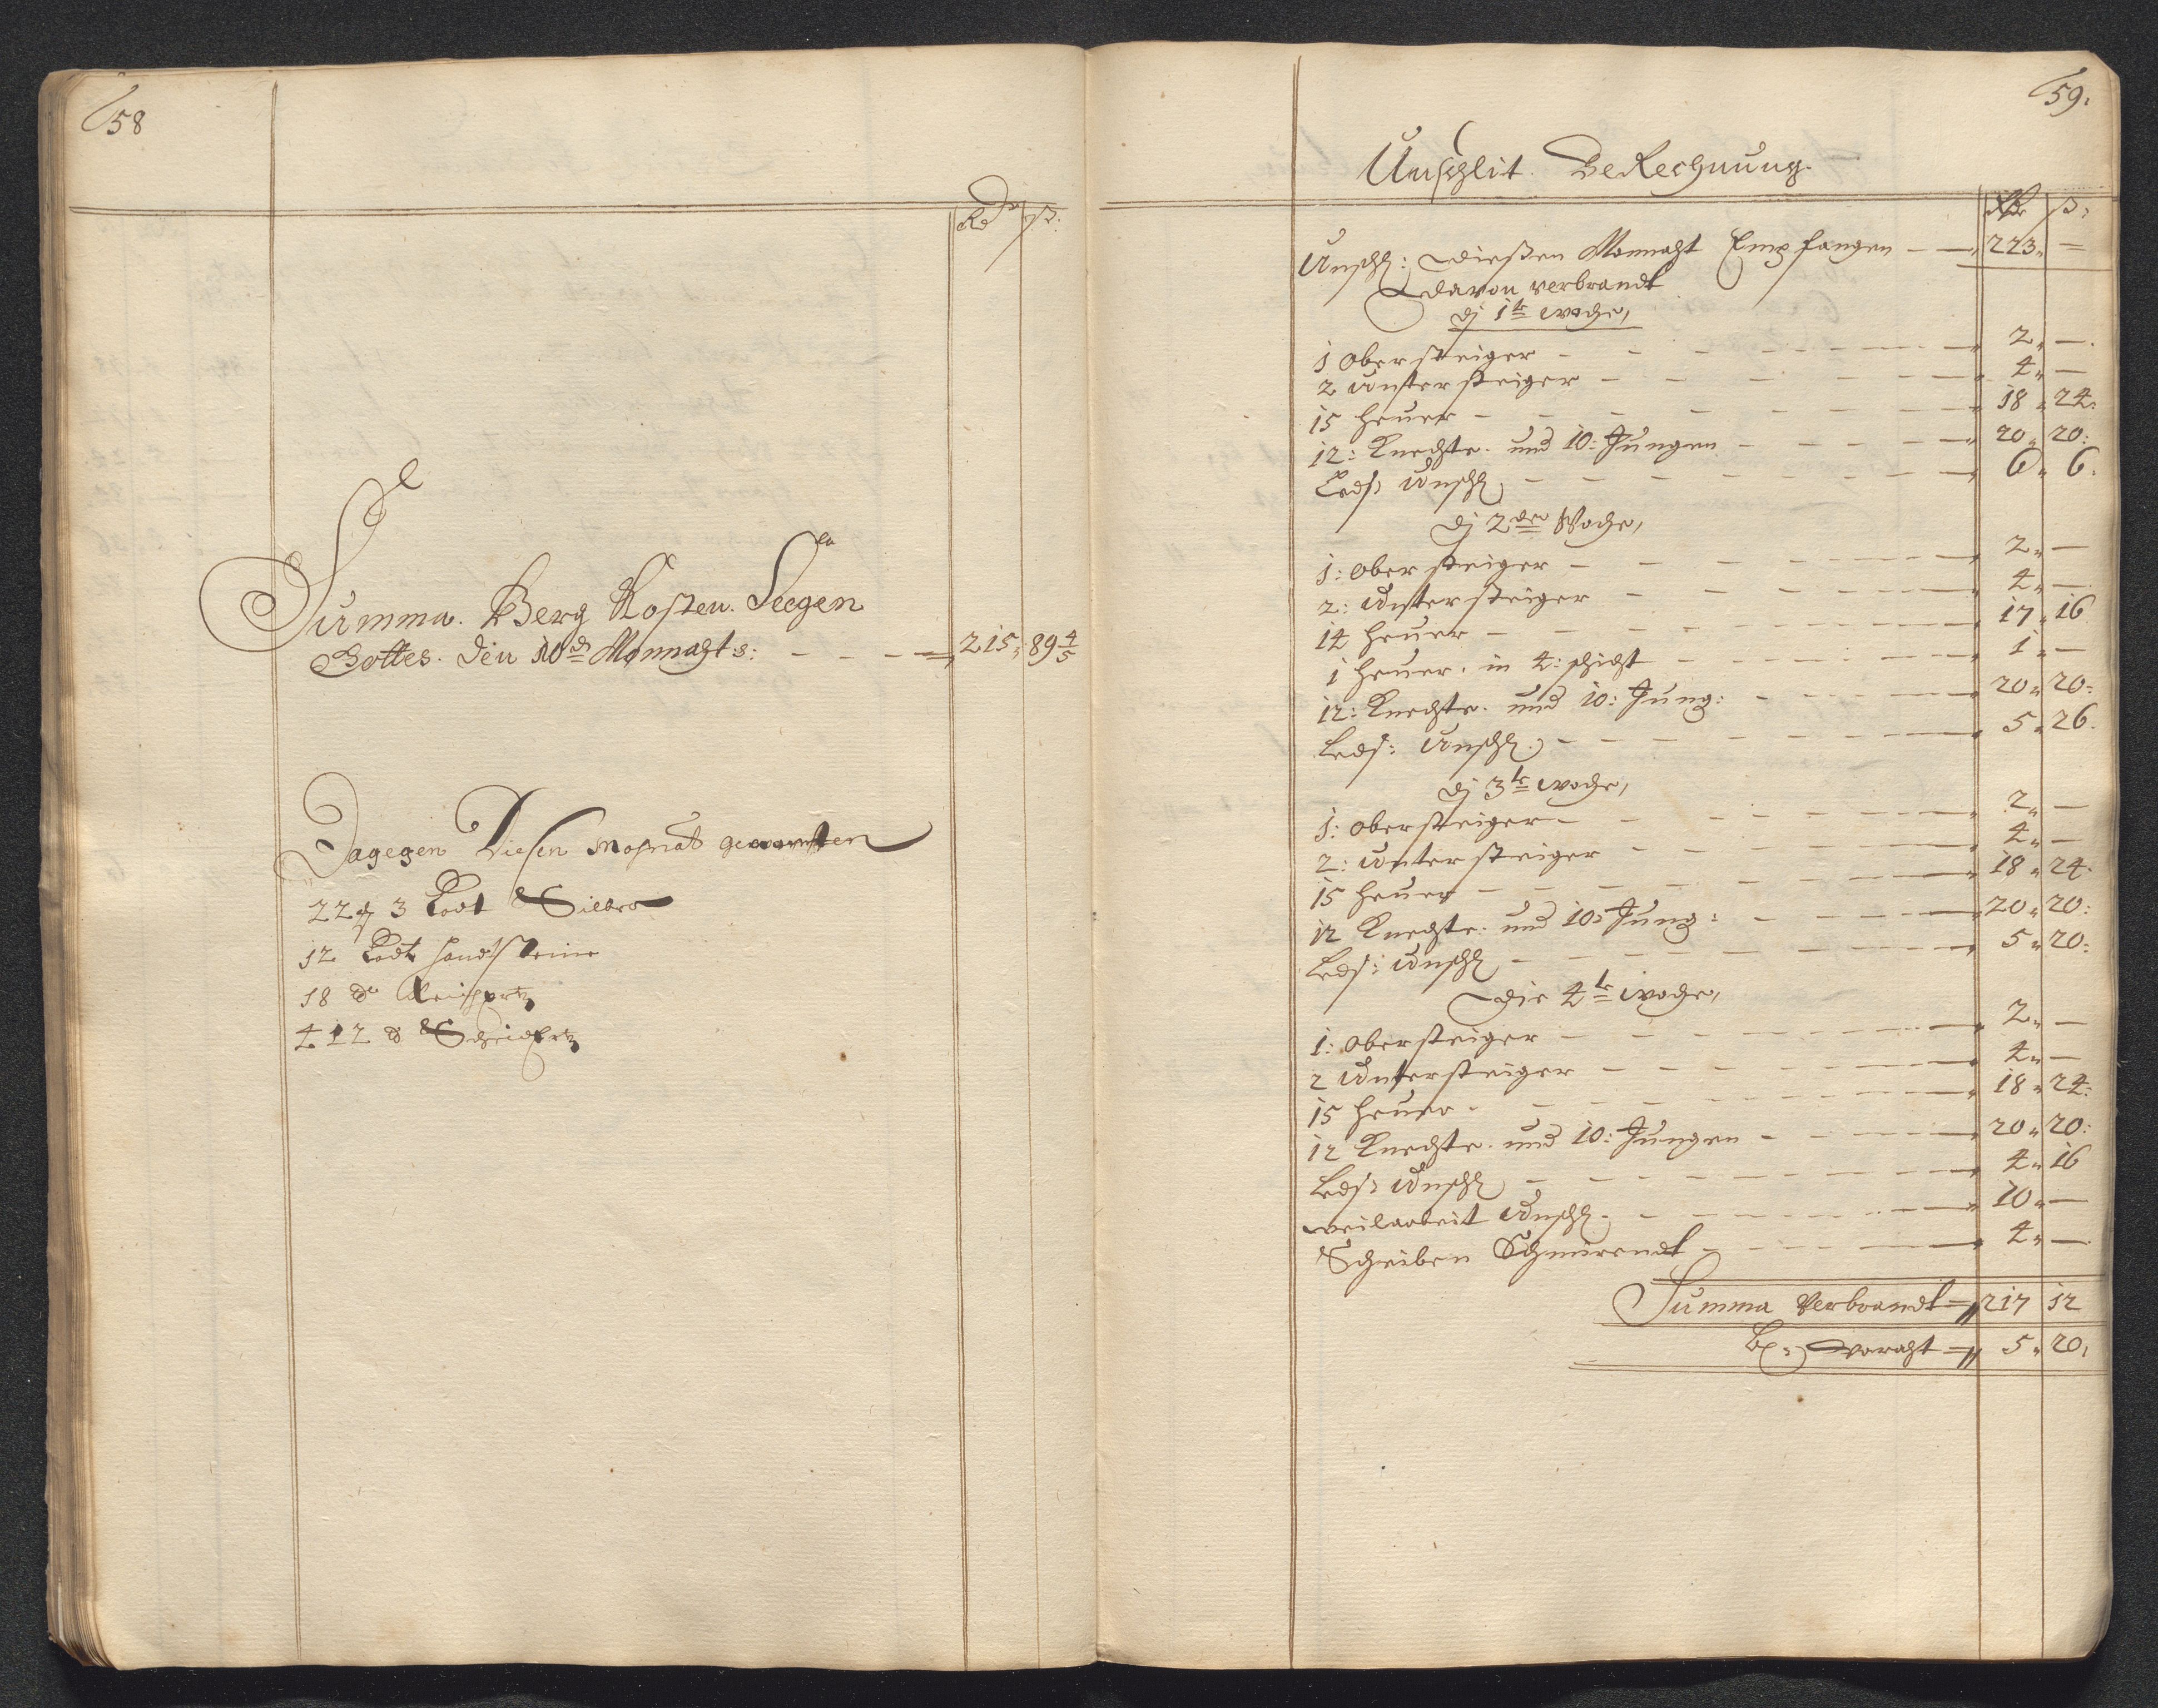 58
Rdr ß:
Summa. Berg Kosten. Seegen
Gottes. den 10ds Monnahts: 215 89 4/5
Dagegen Diesen Mohnat
22 3 Lodt Silber
12 Lodt handsteine
18 do
412 do Scheidertz
59.
Unschlit. BeRechnung.
ß:
Unschl: dießen Monnaht Empfangen 223 —
davon verbrandt
dj 1te woche,
1 obersteiger 2 —
2 Untersteiger 4 —
15 heuer 18 24
12: Knechte. und 10: Jungen 20 20
Leds: Unschl 6 6
dj 2den Woche,
1: obersteiger 2 —
2: Untersteiger 4 —
14 heuer 17 16
1 heuer. in 4: schicht 1 —
12: Knechte. und 10: Jung: 20 20
Leds: Unschl 5 26
dj 3te woche,
1: obersteiger 2 —
2: Untersteiger 4 —
15 heuer 18 24
12 Knechte. und 10: Jung: 20 20
Leds: Unschl 5 20
Die 4te woche,
1: obersteiger 2 —
2 Untersteiger 4 —
15 heuer 18 24
12 Knechte. und 10: Jungen 20 20
Leds: Unschl 4 16
weilarbeit Unschl 10 —
Scheiben Schmirendt 4 —
Summa Verbrandt 217 12
voraht 5 20